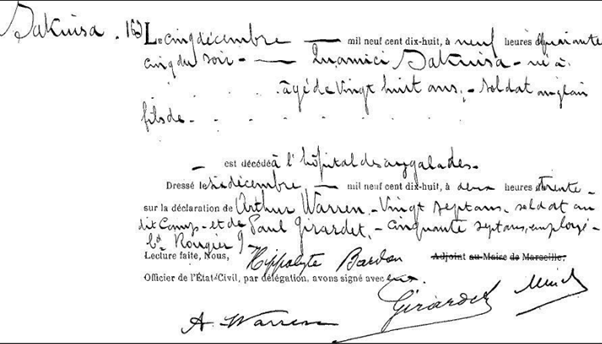 Dakuisa. 163
Le cinq décembre — mil neuf cent dix-huit, à neuf heures quarante
cinq du soir — Dakuisa — né à
âgé de vingt huit ans, soldat anglais
fils de
— est décédé à l'hôpital des aygalades.
Dressé le six décembre — mil neuf cent dix-huit, à deux heures trente
sur la déclaration de Arthur Warren, vingt sept ans, soldat au
dit Camp et de Paul Girardet, cinquante sept ans, employé
bd Rougier 9
Lecture faite, Nous, Hippolyte Bardon Adjoint au Maire de Marseille.
Officier de l'État-Civil, par délégation, avons signé avec eux.
Girardet
A Warren